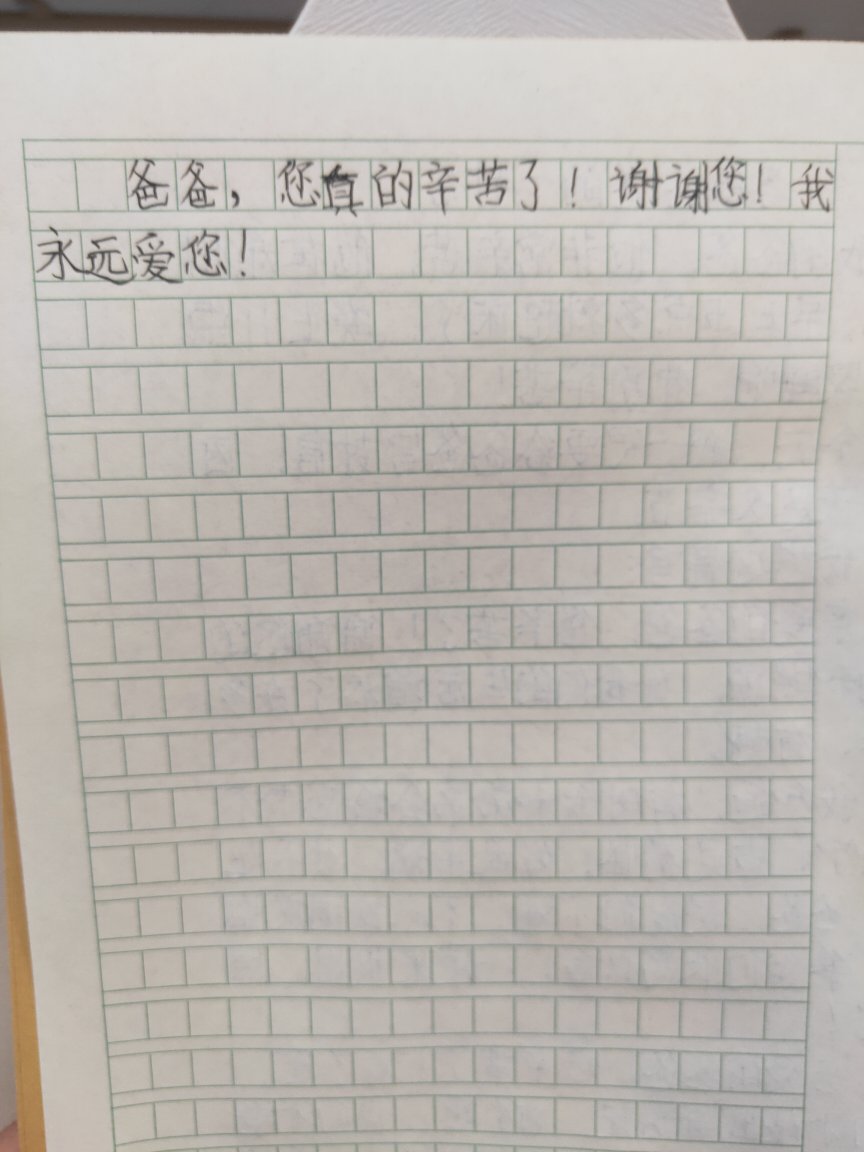 爸爸，您真的辛苦了！谢谢您！我
永远爱您！